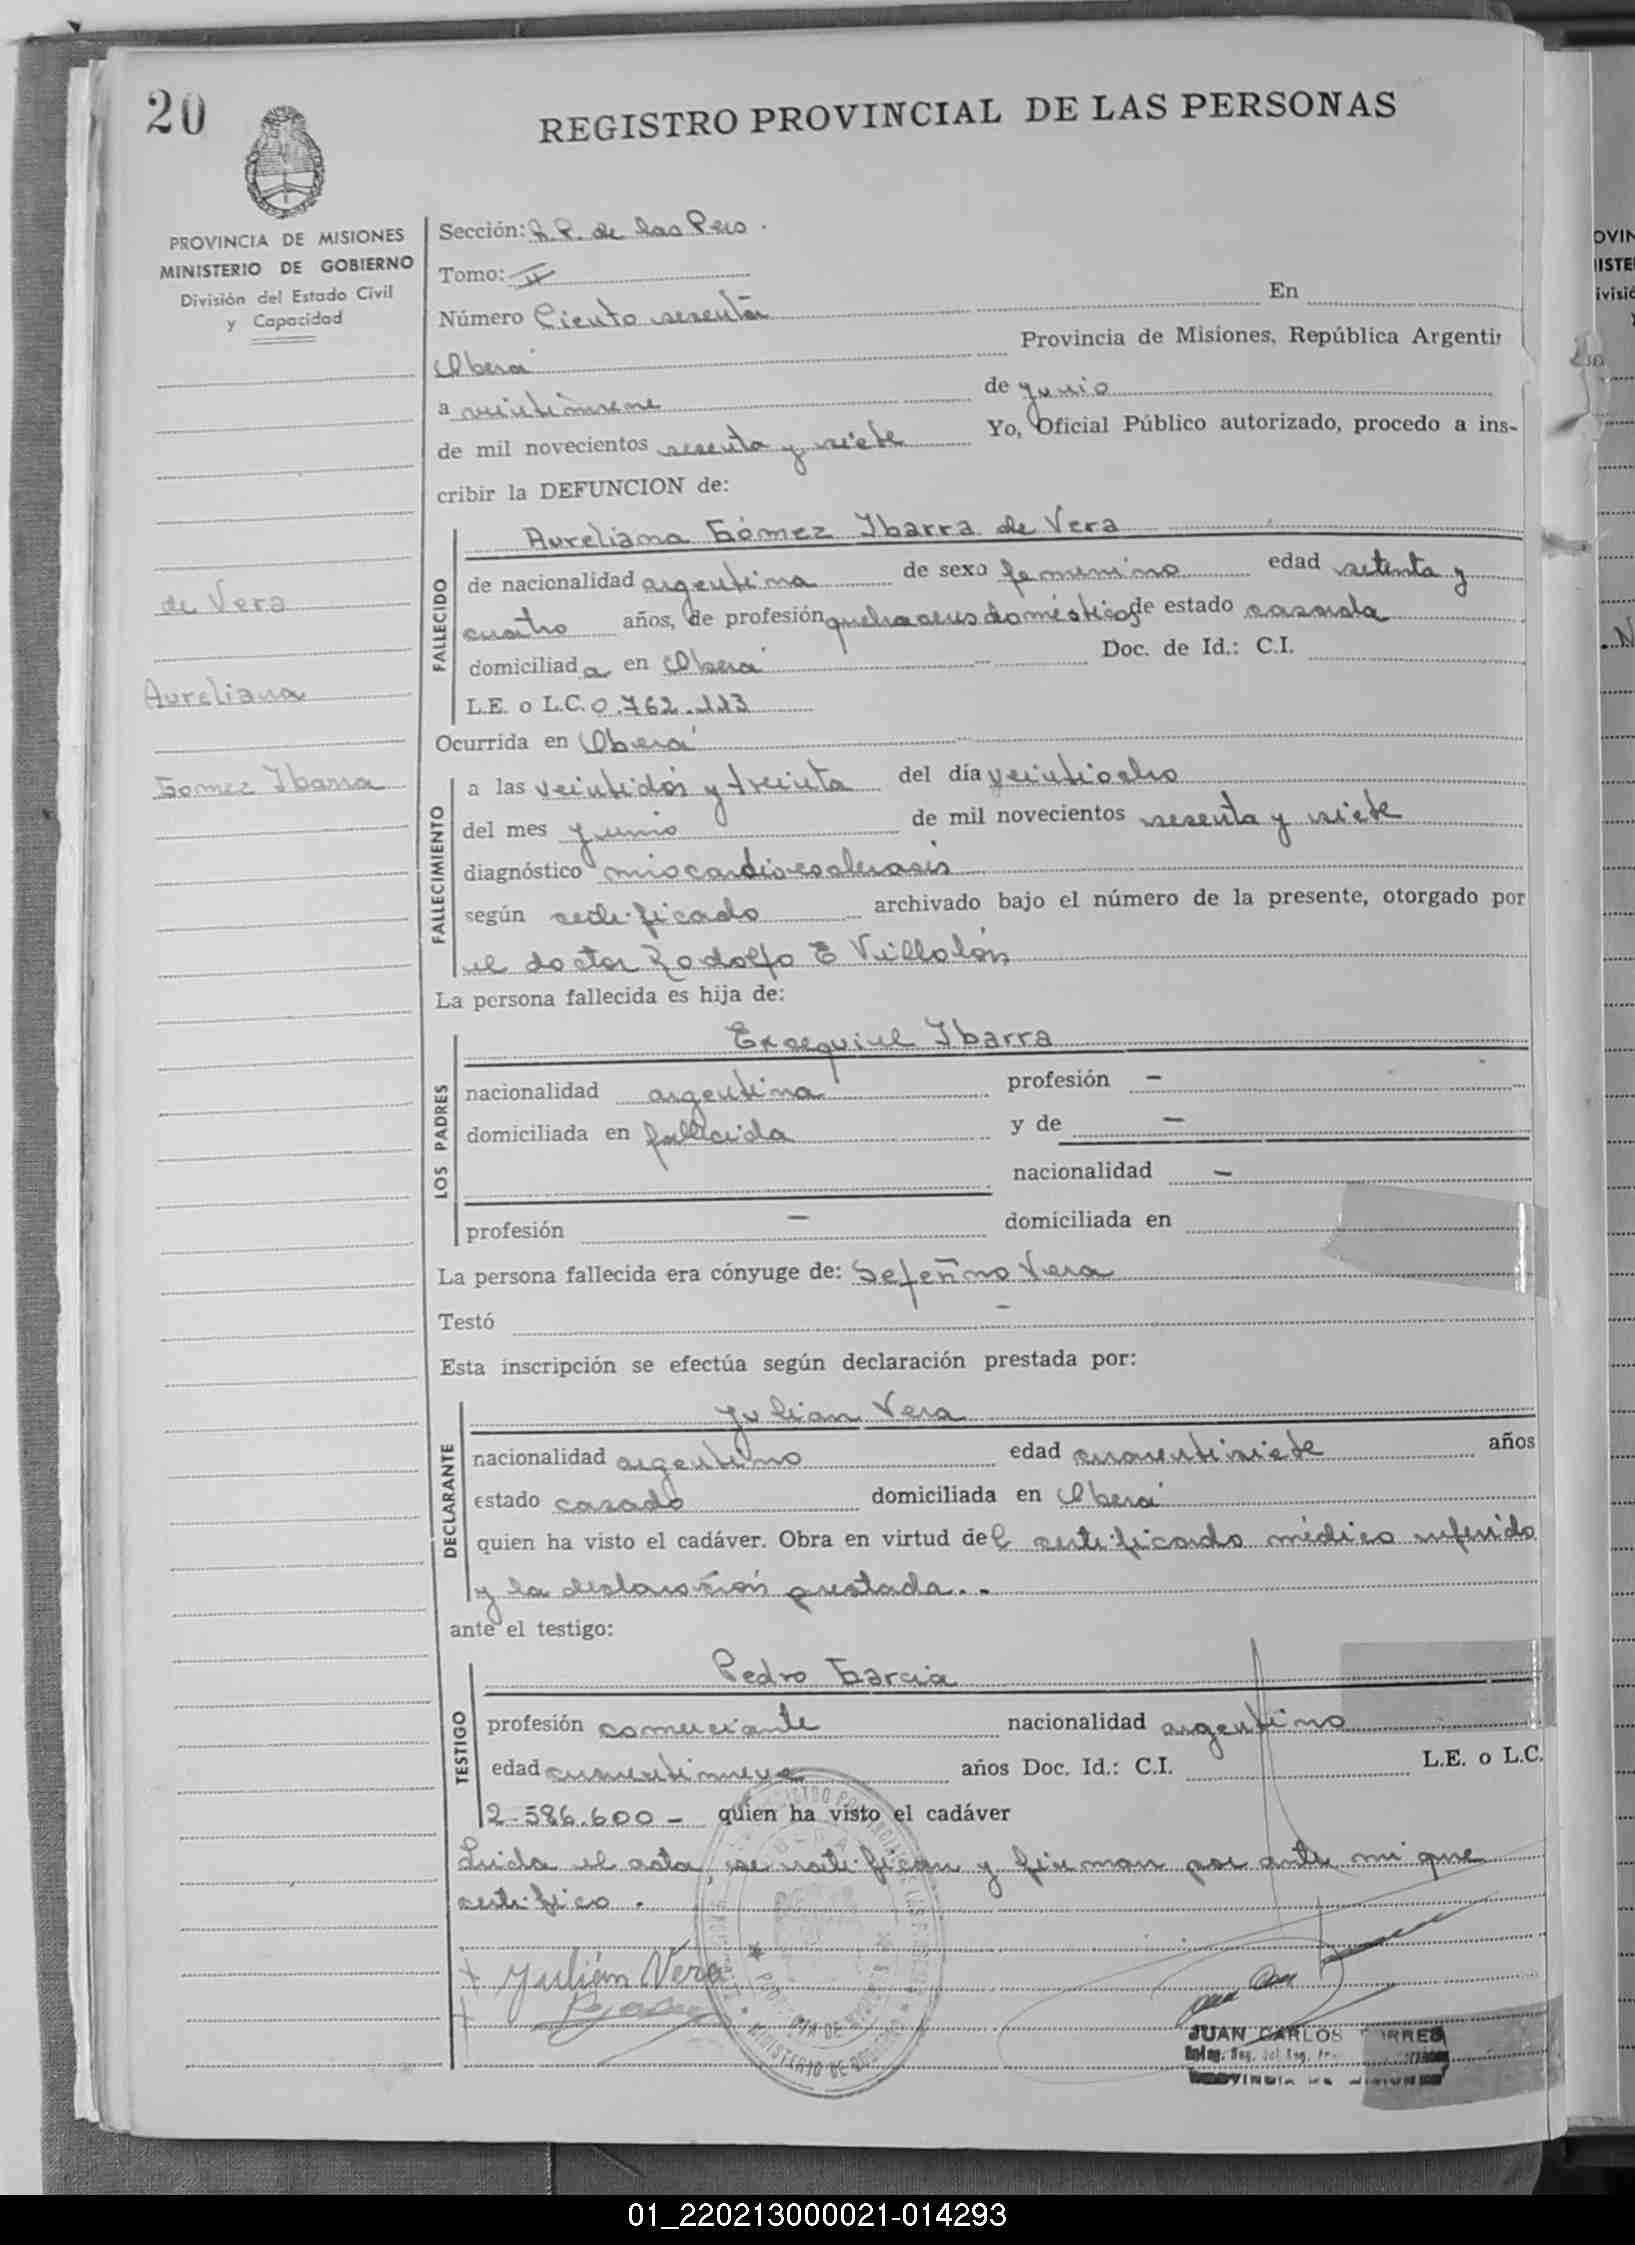 20
REGISTRO PROVINCIAL DE LAS PERSONAS
PROVINCIA DE MISIONES
MINISTERIO DE GOBIERNO
División del Estado Civil
y Capacidad
de Vera
Aureliana
Gomez Ibarra
Sección: R.P. de las Pers.
Tomo: II
Número Ciento sesenta En
Oberá Provincia de Misiones, República Argentin
a veintinueve de junio
de mil novecientos sesenta y siete Yo, Oficial Público autorizado, procedo a ins-
cribir la DEFUNCION de:
FALLECIDO
Aureliana Gómez Ibarra de Vera
de nacionalidad argentina de sexo femenino edad setenta y
cuatro años, de profesión quehaceres domésticos de estado casada
domiciliada en Oberá Doc. de Id.: C.I.
L.E. o L.C. 0.762.113
Ocurrida en Oberá
FALLECIMIENTO
a las veintidós y treinta del día veintiocho
del mes junio de mil novecientos sesenta y siete
diagnóstico miocardioesclerosis
según certificado archivado bajo el número de la presente, otorgado por
el doctor Rodolfo E Villalón
La persona fallecida es hija de:
LOS PADRES
Exequiel Ibarra
nacionalidad argentina profesión –
domiciliada en fallecida y de –
nacionalidad –
profesión – domiciliada en
La persona fallecida era cónyuge de: Seferino Vera
Testó –
Esta inscripción se efectúa según declaración prestada por:
DECLARANTE
Julian Vera
nacionalidad argentino edad cuarentisiete años
estado casado domiciliada en Oberá
quien ha visto el cadáver. Obra en virtud del certificado médico referido
y la declaración prestada. -
ante el testigo:
TESTIGO
Pedro Garcia
profesión comerciante nacionalidad argentino
edad cuarentinueve años Doc. Id.: C.I. L.E. o L.C.
2.586.600 - quien ha visto el cadáver
Leida el acta, se ratifican y firman por ante mi que
certifico.
+ Julián Vera
JUAN CARLOS
01_220213000021-014293